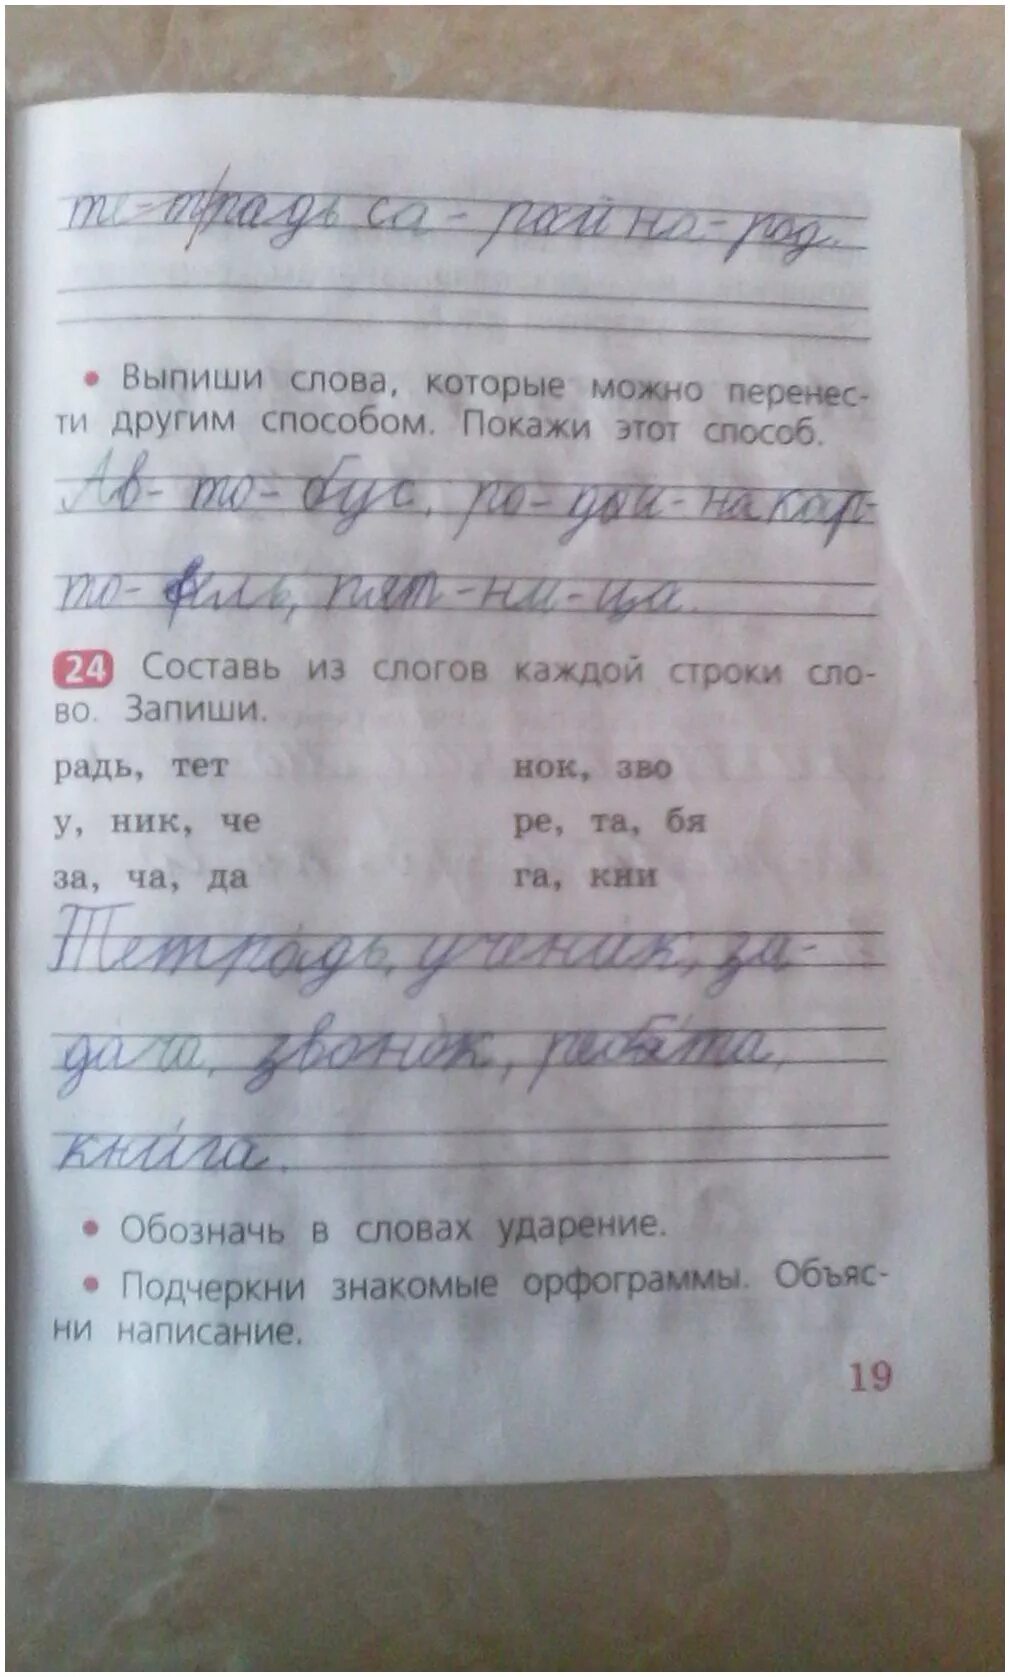 те-т/радь са - рай на - род.
• Выпиши слова, которые можно перенес-
ти другим способом. Покажи этот способ.
Ав- то- бус, ро- дой- на кар-
то- фель, пят -ни -ца.
24 Составь из слогов каждой строки сло-
во. Запиши.
радь, тет нок, зво
у, ник, че ре, та, бя
за, ча, да га, кни
Тетра́дь, учени́к, за-
да́ча, звоно́к, ребя́та,
кни́га.
• Обозначь в словах ударение.
• Подчеркни знакомые орфограммы. Объяс-
ни написание.
19